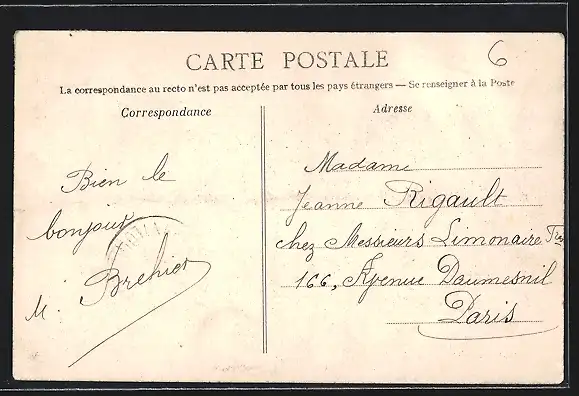 CARTE POSTALE
6
La correspondance au recto n'est pas acceptée par tous les pays étrangers — Se renseigner à la Poste
Correspondance
Bien le
bonjour
M. Brehier
Adresse
Madame
Jeanne Rigault
chez Messieurs Limonaire
166, Avenue Daumesnil
Paris